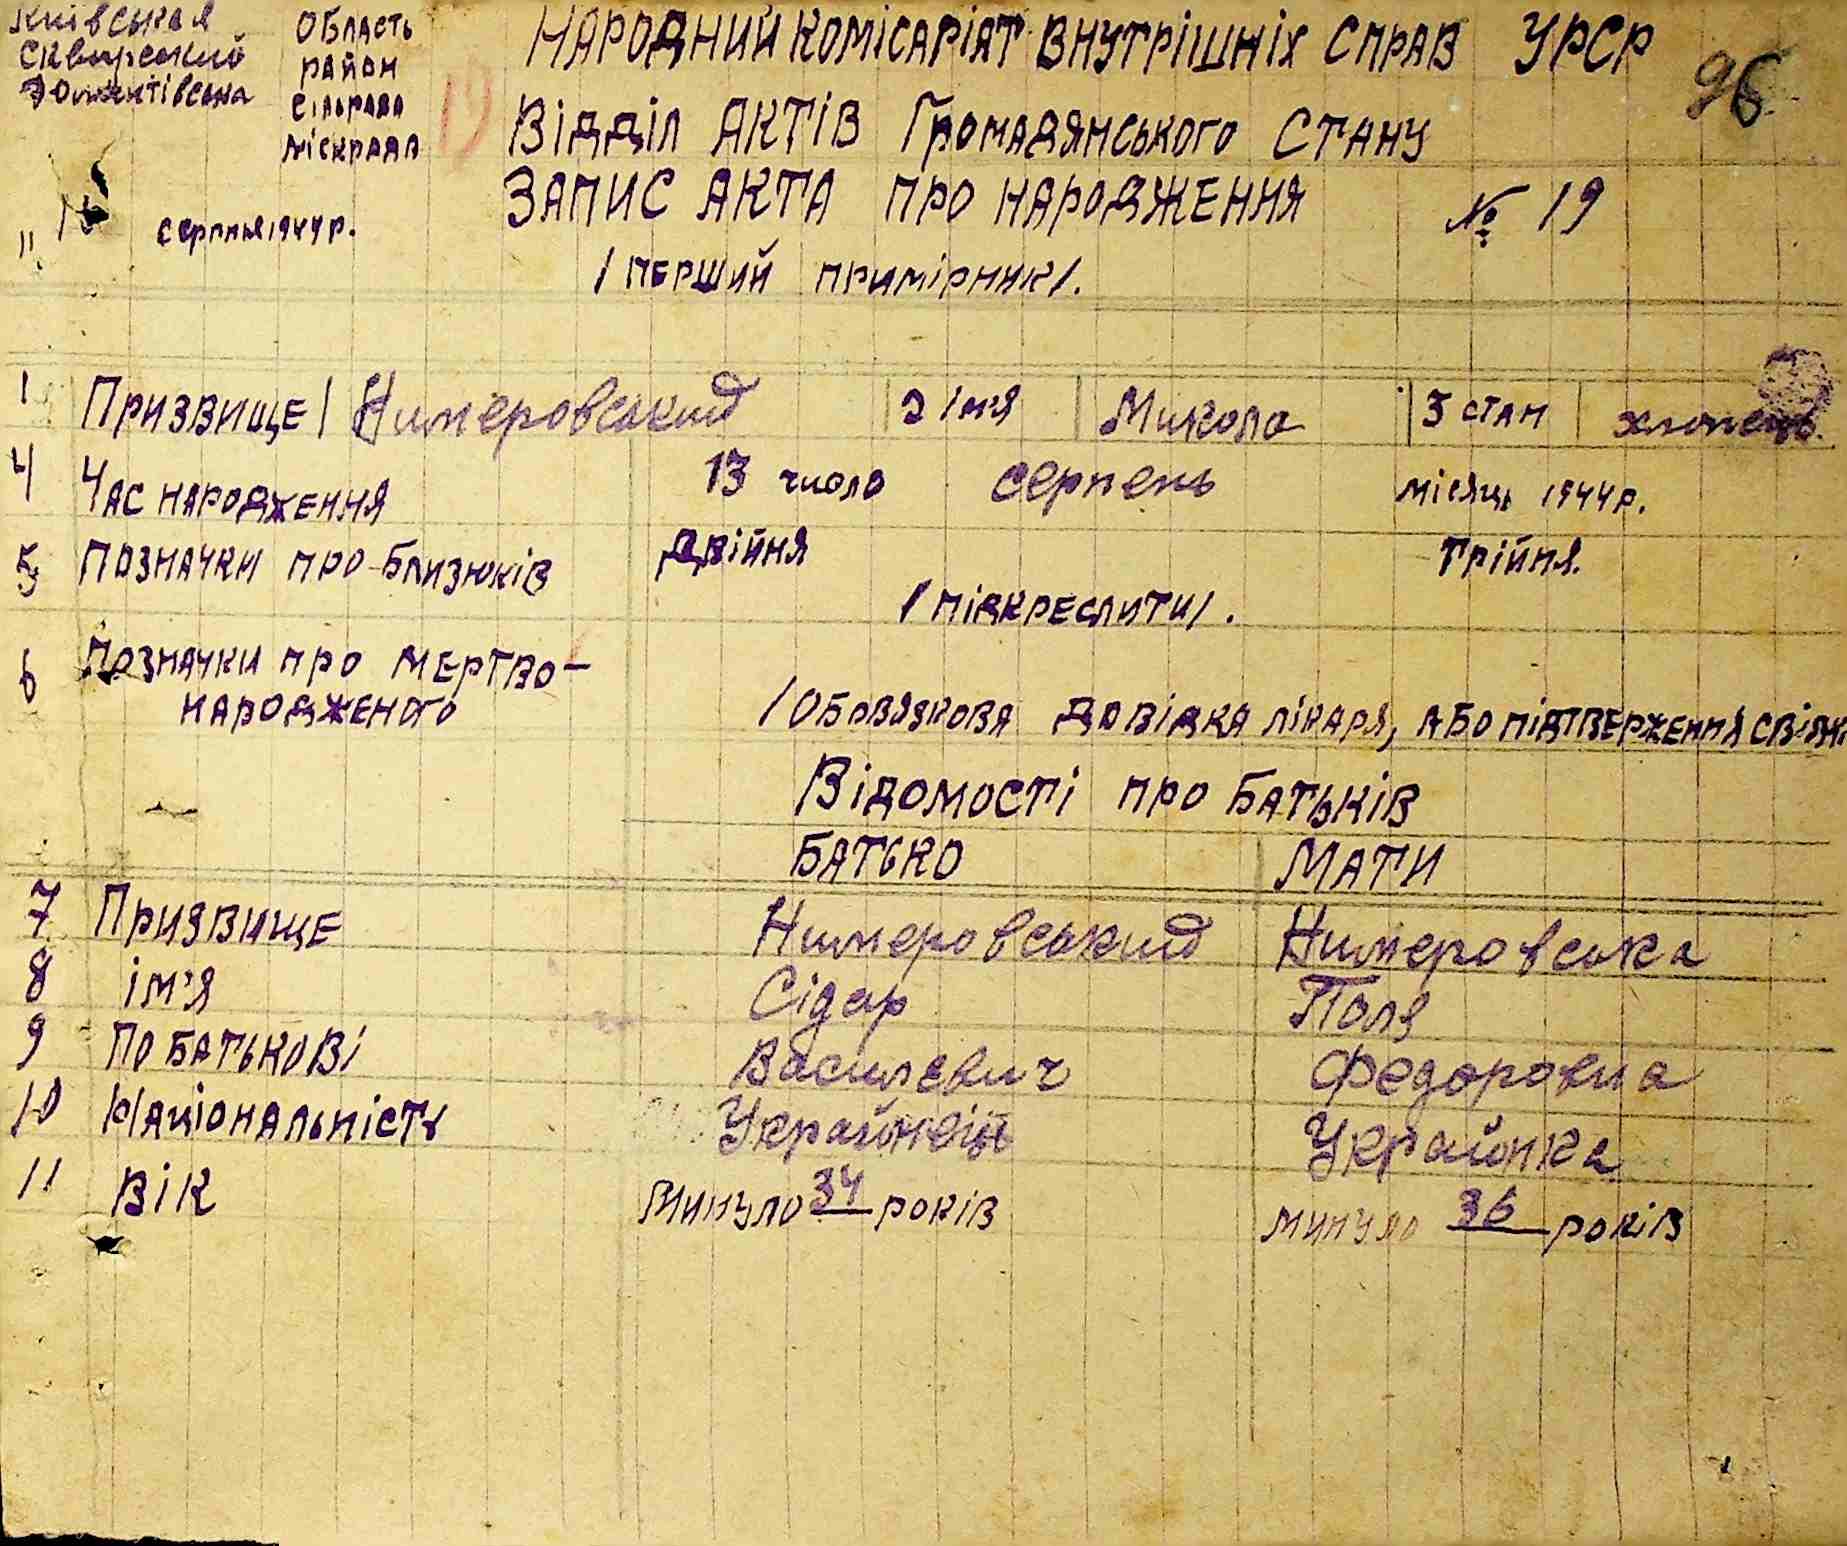 Київськая область
Сквирський район
сільрада
міскрада
96
19
Народний комісаріят внутрішніх справ УРСР
Відділ актів Громадянського Стану
Запис акта про народження № 19
" серпня 1944 р.
/перший примірник/.
1 Призвище / Нимеровський 2 імя Микола 3 стан хлопець.
4 Час народження 13 число серпень місяць 1944 р.
5 Позначки про близюків двійня трійня.
/підкреслити/.
6 Позначки про мертво-
народженого /Обовязкова довідка лікаря, або підтверження
Відомості про батьків
Батько Мати
7 Призвище Нимеровський Нимеровська
8 ім'я Сідор Поля
9 По батькові Василевич Федоровна
10 Національність Українець Українка
11 Вік Минуло 34 років минуло 36 років